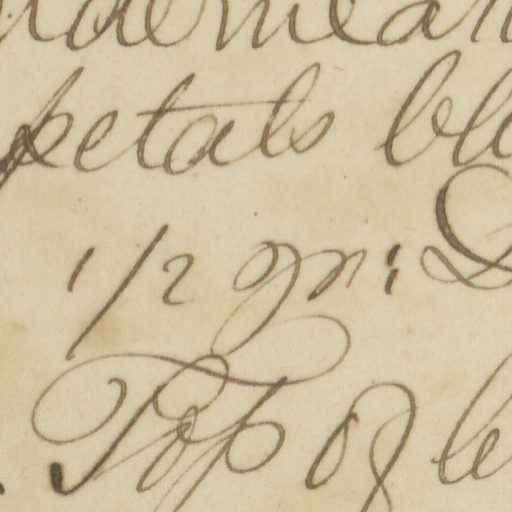 petals bl
1/2 gr:
Top of le